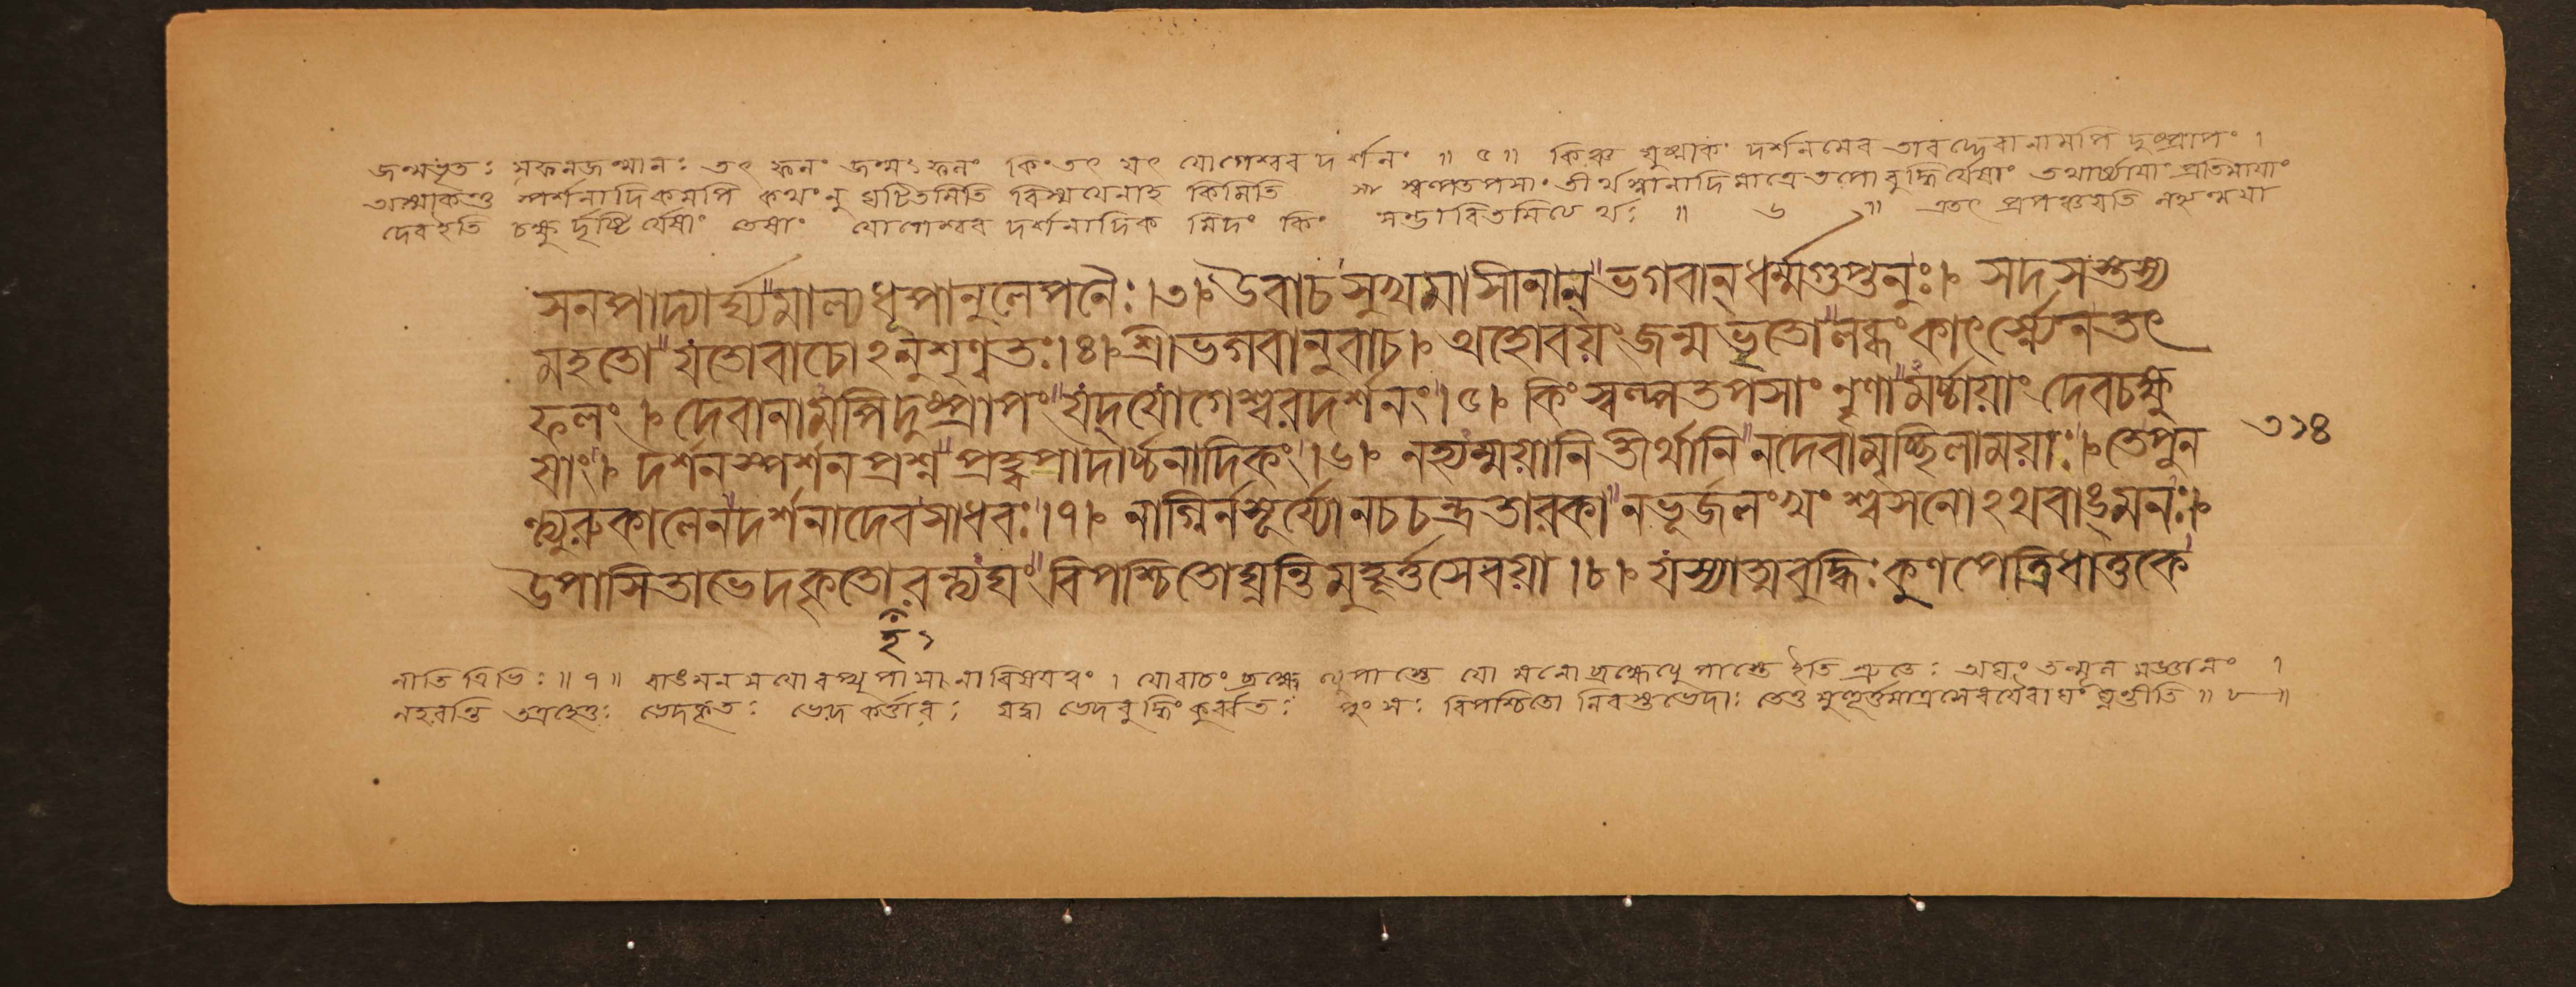 জন্মভৃতঃ সফলজন্মানঃ তৎ ফলং জন্মঃফলং কিংতৎ যৎ যোগেশ্বর দর্শনং ॥ ৫॥ কিঞ্চ যুষ্মাকং দর্শনমেব তাবদ্দেবানামপি দুষ্প্রাপং ।
অস্মাকন্তু স্পর্শনাদিকমপি কথংনু ঘটিতমিতি বিস্ময়েনাহ কিমিতি স্বল্পতপসাং তীর্থস্নানাদিমাত্রে তপোবুদ্ধির্যেষাং তথার্চ্চায়াং প্রতিমায়াং
দেবইতি চক্ষুর্দৃষ্টির্যেষাং তেষাং যোগেশ্বর দর্শনাদিক মিদং কিং সম্ভাবিতমিত্যর্থঃ ॥ ৬ ॥ এতৎ প্রপঞ্চয়তি নহ্যম্ময়া
সনপাদ্যার্ঘ্য॥মাল্যধূপানুলেপনৈঃ।৩। উবাচসুখমাসীনান্॥ভগবান্ধর্ম্মগুপ্তনুঃ। সদসস্তস্য
মহতো॥যতোবাচোঽনুশৃণ্বতঃ।৪। শ্রীভগবানুবাচ। অহোবয়ংজন্মভৃতো॥লব্ধংকাৎর্স্ন্যেনতৎ
ফলং। দেবানামপিদুষ্প্রাপং॥যদ্‌যোগেশ্বরদর্শনং।৫। কিংস্বল্পতপসাংনৃণা॥মর্চ্চায়াংদেবচক্ষু
ষাং। দর্শনস্পর্শনপ্রশ্ন॥প্রহ্বপাদার্চ্চনাদিকং।৬। নহ্যম্ময়ানিতীর্থানি॥নদেবামৃচ্ছিলাময়াঃ। তেপুন
ন্ত্যুরুকালেন॥দর্শনাদেবসাধবঃ।৭। নাগ্নির্নসূর্য্যোনচচন্দ্রতারকা॥নভূর্জলংখংশ্বসনোঽথবাঙ্মনঃ।
উপাসিতাভেদকৃতোরন্ত্যঘং॥বিপশ্চিতোঘ্নন্তিমুহূর্ত্তসেবয়া।৮। যস্যাত্মবুদ্ধিঃকুণপেত্রিধাতুকে
৩১৪
হঁ১
নীতি ত্রিভিঃ ॥ ৭ ॥ বাঙমনসয়োরপ্যুপাসনাবিষয়ত্বং । যোবাচং ব্রহ্মেত্যুপাস্তে যো মনোব্রহ্মেত্যুপাস্তে ইতি শ্রুতেঃ অঘং তন্মূল মজ্ঞানং ।
নহরন্তি তত্রহেতুঃ ভেদকৃতঃ ভেদকর্ত্তারঃ যদ্বা ভেদবুদ্ধিং কুর্ব্বতঃ পুংসঃ বিপশ্চিতো নিরস্তভেদাঃ তেতু মুহূর্ত্তমাত্রসেবয়ৈবাঘং ঘ্নন্তীতি ॥ ৮ ॥